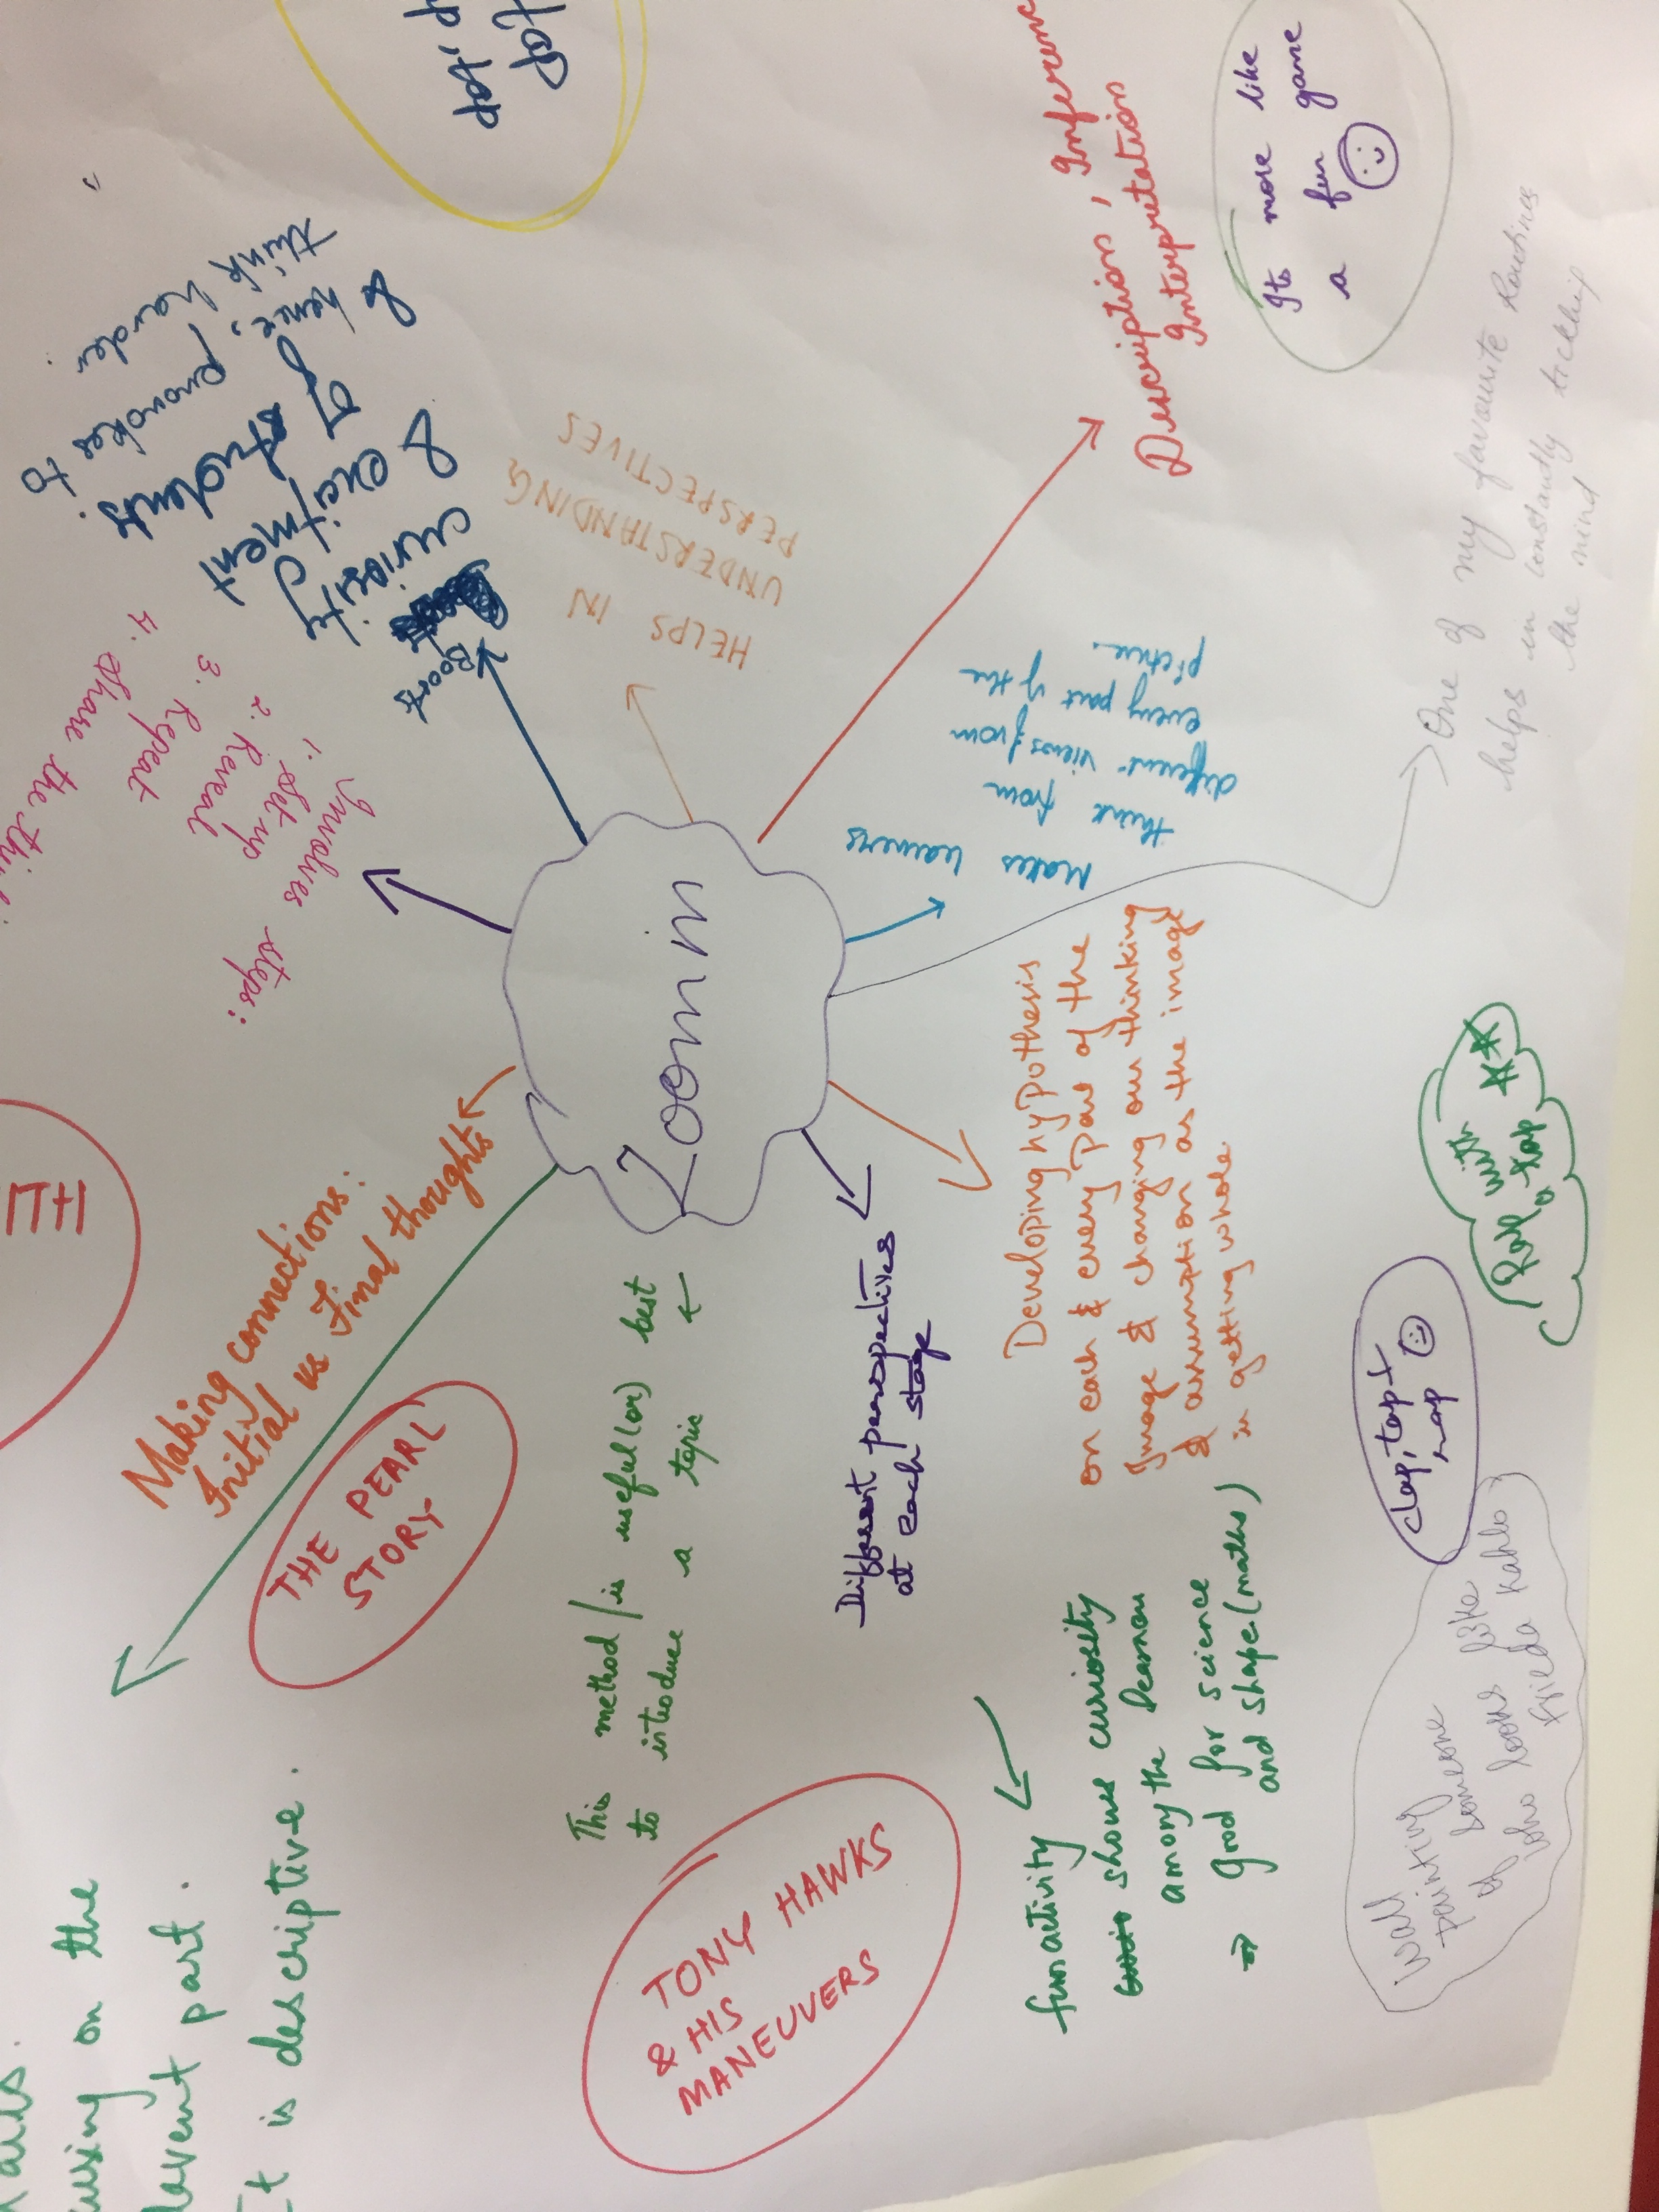 Zoom in
Boosts
curiosity
& excitment
of students
& hence, provokes to
think harder.
HELPS IN
UNDERSTANDING
PERSPECTIVES
Description, Inference
Interpretation
Its more like
a fun game
Makes learners
think from
different views from
every part of the
picture.
One of my favourite Routines
helps in constantly tickling
the mind
Developing hypothesis
on each & every part of the
Image & changing our thinking
& assumption as the image
is getting whole.
Different perespectives
at each stage
This method/is useful(or) best
to introduce a topic
fun activity
shows curiosity
among the learner
⇒ good for science
and shape(maths)
TONY HAWKS
& HIS
MANEUVERS
THE PEARL
STORY
Making connections:
Initial vs Final thoughts
Involves steps:
1. Set up
2. Reveal
3. Repeat
4. Share the
using on the
part.
t is descriptive.
Clap, tap &
Rap with
a tap
Wall
painting
of someone
who looks like
Frieda Kahlo